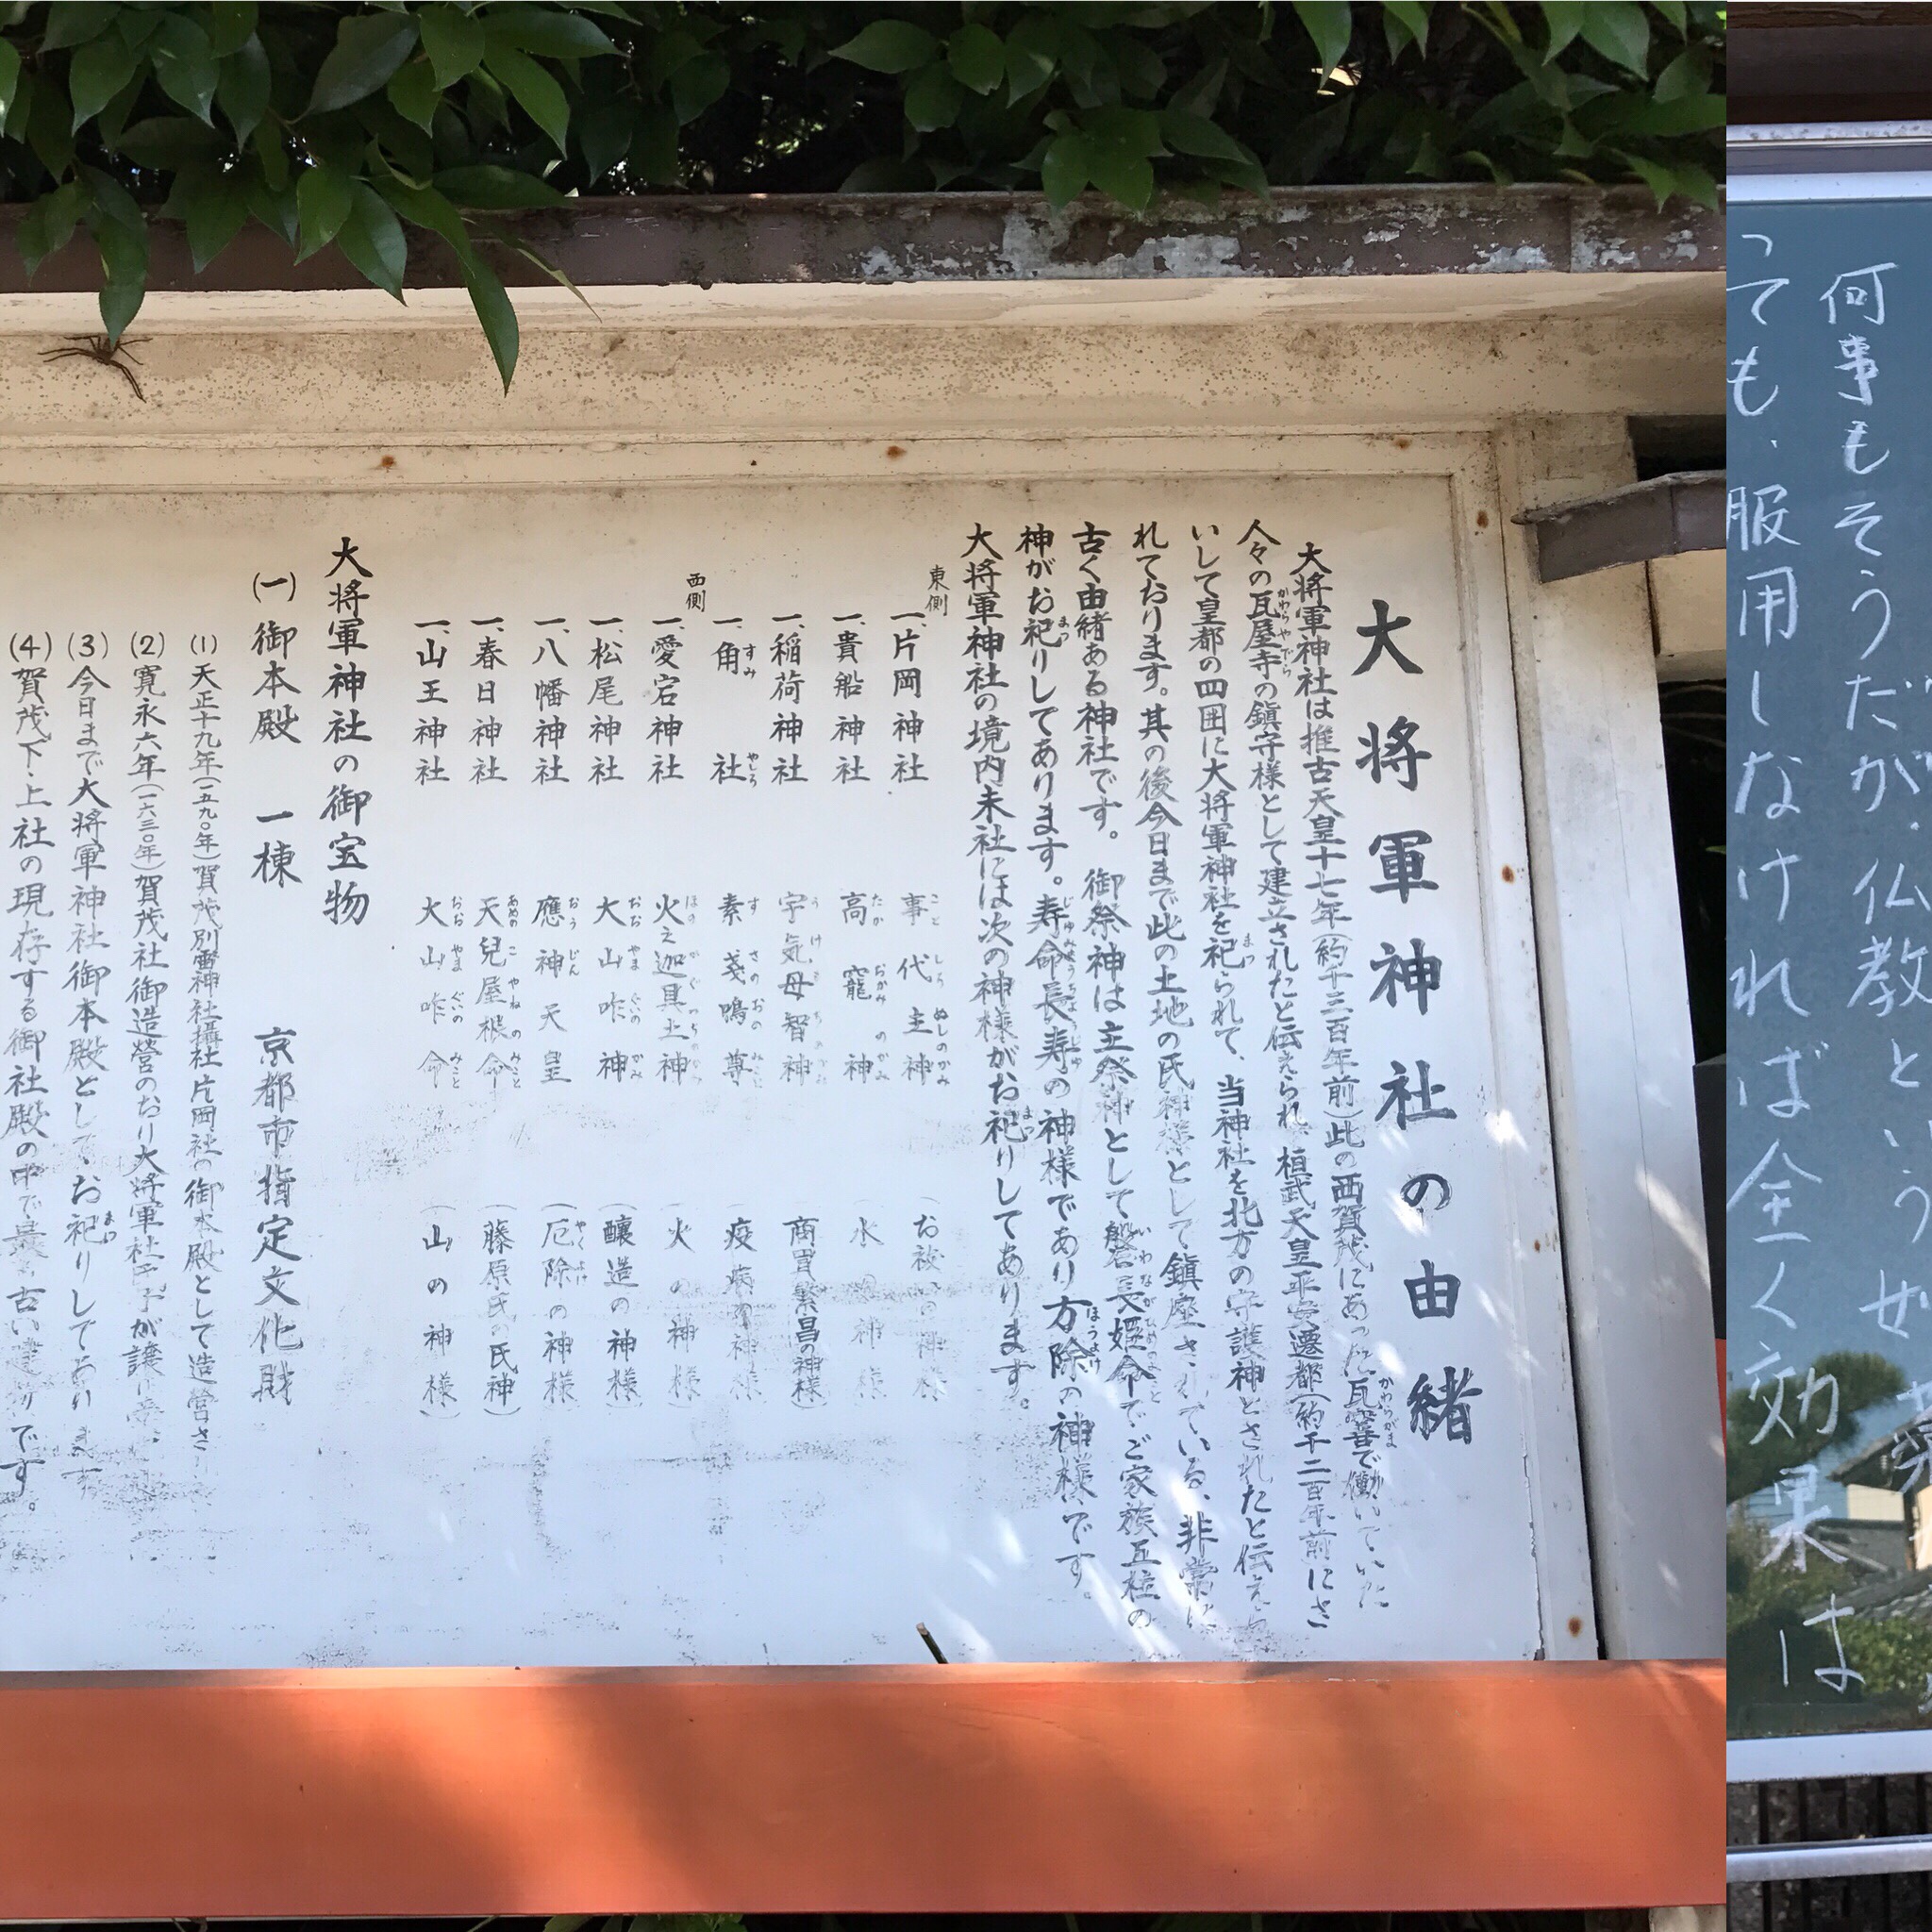 大将軍神社の由緒
大将軍神社は推古天皇十七年(約千三百年前)此の西賀茂にあった瓦窯で働いていた
人々の瓦屋寺の鎮守様として建立されたと伝えられ、桓武天皇平安遷都(約千二百年前)にさ
いして皇都の四囲に大将軍神社を祀られて、当神社を北方の守護神とされたと伝えら
れております。其の後今日まで此の土地の氏神様として鎮座されている、非常に
古く由緒ある神社です。御祭神は主祭神として磐長姫命でご家族五柱の
神がお祀りしてあります。寿命長寿の神様であり方除の神様です。
大将軍神社の境内末社には次の神様がお祀りしてあります。
東側
一、片岡神社 事代主神 (お祓いの神様)
一、貴船神社 高龗神 (水の神様)
一、稲荷神社 宇気母智神 (商買繁昌の神様)
一、角社 素戔鳴尊 (疫病の神様)
西側
一、愛宕神社 火之迦具土神 (火の神様)
一、松尾神社 大山咋神 (醸造の神様)
一、八幡神社 應神天皇 (厄除の神様)
一、春日神社 天兒屋根命 (藤原氏の氏神)
一、山王神社 大山咋命 (山の神様)
大将軍神社の御宝物
(一)御本殿 一棟 京都市指定文化財
(1)天正十九年(一五九〇年)賀茂別雷神社攝社片岡社の御本殿として造営さ
(2)寛永六年(一六三〇年)賀茂社御造營のおり大将軍社が譲
(3)今日まで大将軍神社御本殿として、お祀りしております
(4)賀茂下・上社の現存する御社殿の中で最も古い建物です。
何事もそうだが、仏教という
っても、服用しなければ全く効果は